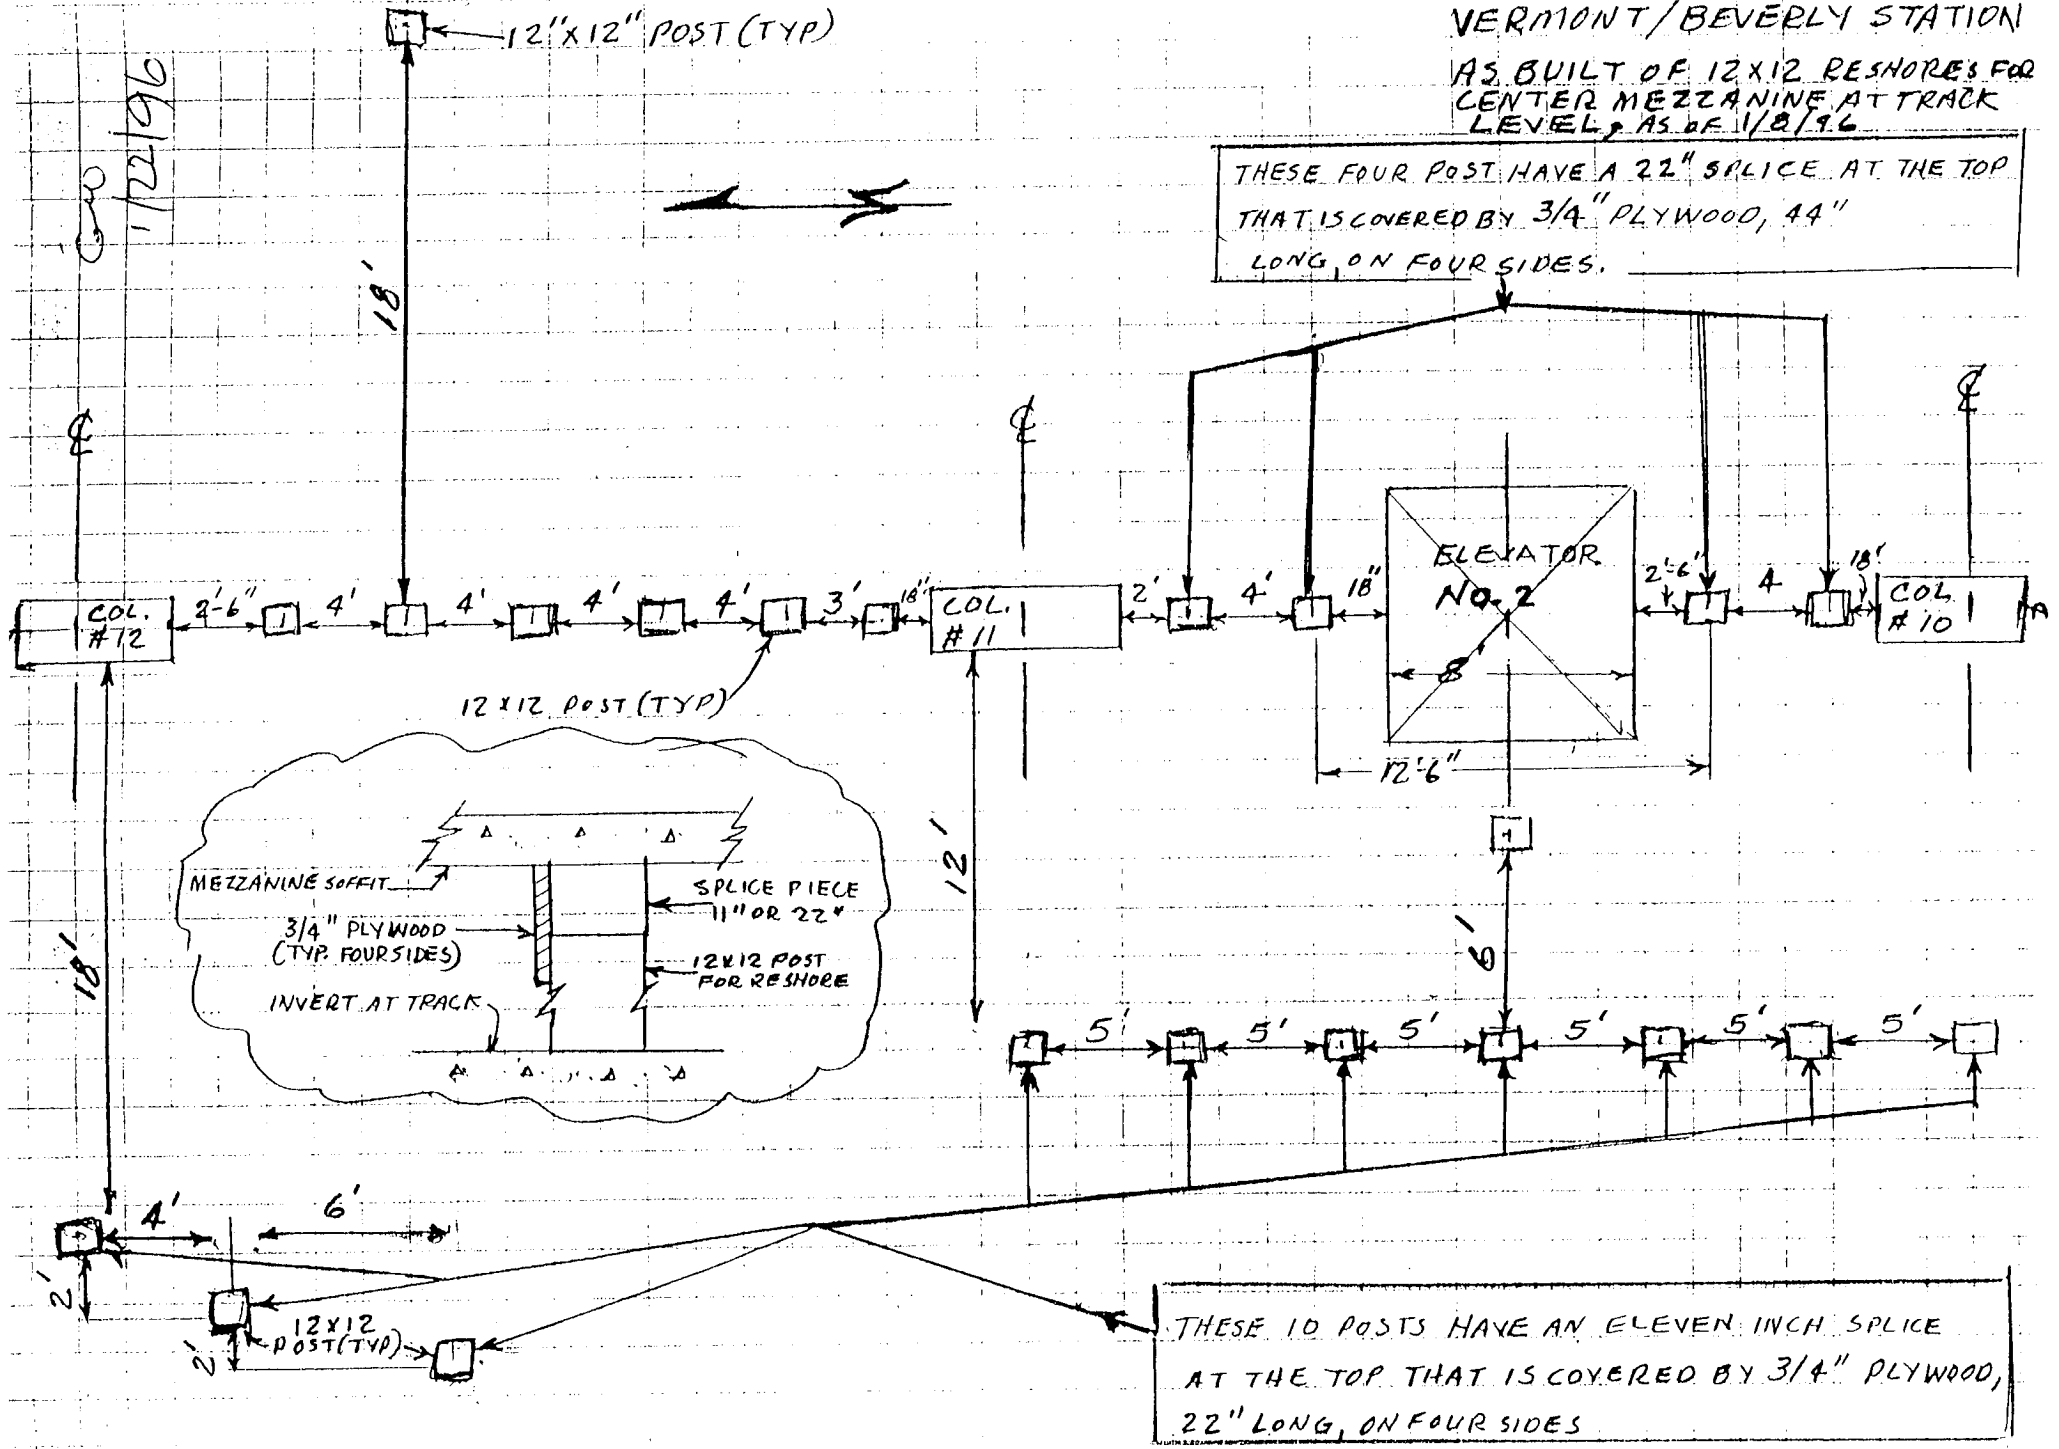 12"X12" POST (TYP)
VERMONT/BEVERLY STATION
AS BUILT OF 12X12 RESHORES FOR
CENTER MEZZANINE AT TRACK
LEVEL, AS OF 1/8/96
1/22/96
THESE FOUR POST HAVE A 22" SPLICE AT THE TOP
THAT IS COVERED BY 3/4" PLYWOOD, 44"
LONG, ON FOUR SIDES.
18'
COL.
#12
2'-6"
4'
4'
4'
4'
3'
18"
COL.
#11
2'
4'
18"
ELEVATOR
NO. 2
8'
2'-6"
4
18"
COL
# 10
12X12 POST (TYP)
12'-6"
MEZZANINE SOFFIT
SPLICE PIECE
11" OR 22"
3/4" PLYWOOD
(TYP. FOUR SIDES)
12X12 POST
FOR RESHORE
INVERT AT TRACK
18'
12'
6'
5'
5'
5'
5'
5'
5'
4'
6'
2'
2'
12X12
POST (TYP)
THESE 10 POSTS HAVE AN ELEVEN INCH SPLICE
AT THE TOP THAT IS COVERED BY 3/4" PLYWOOD,
22" LONG, ON FOUR SIDES